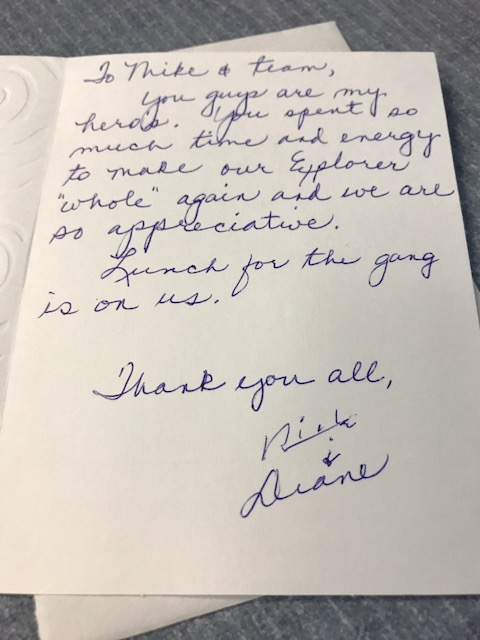 To Mike & team,
You guys are my
heros. You spent so
much time and energy
to make our Explorer
"whole" again and we are
so appreciative.
Lunch for the gang
is on us.
Thank you all,
Rick
&
Diane